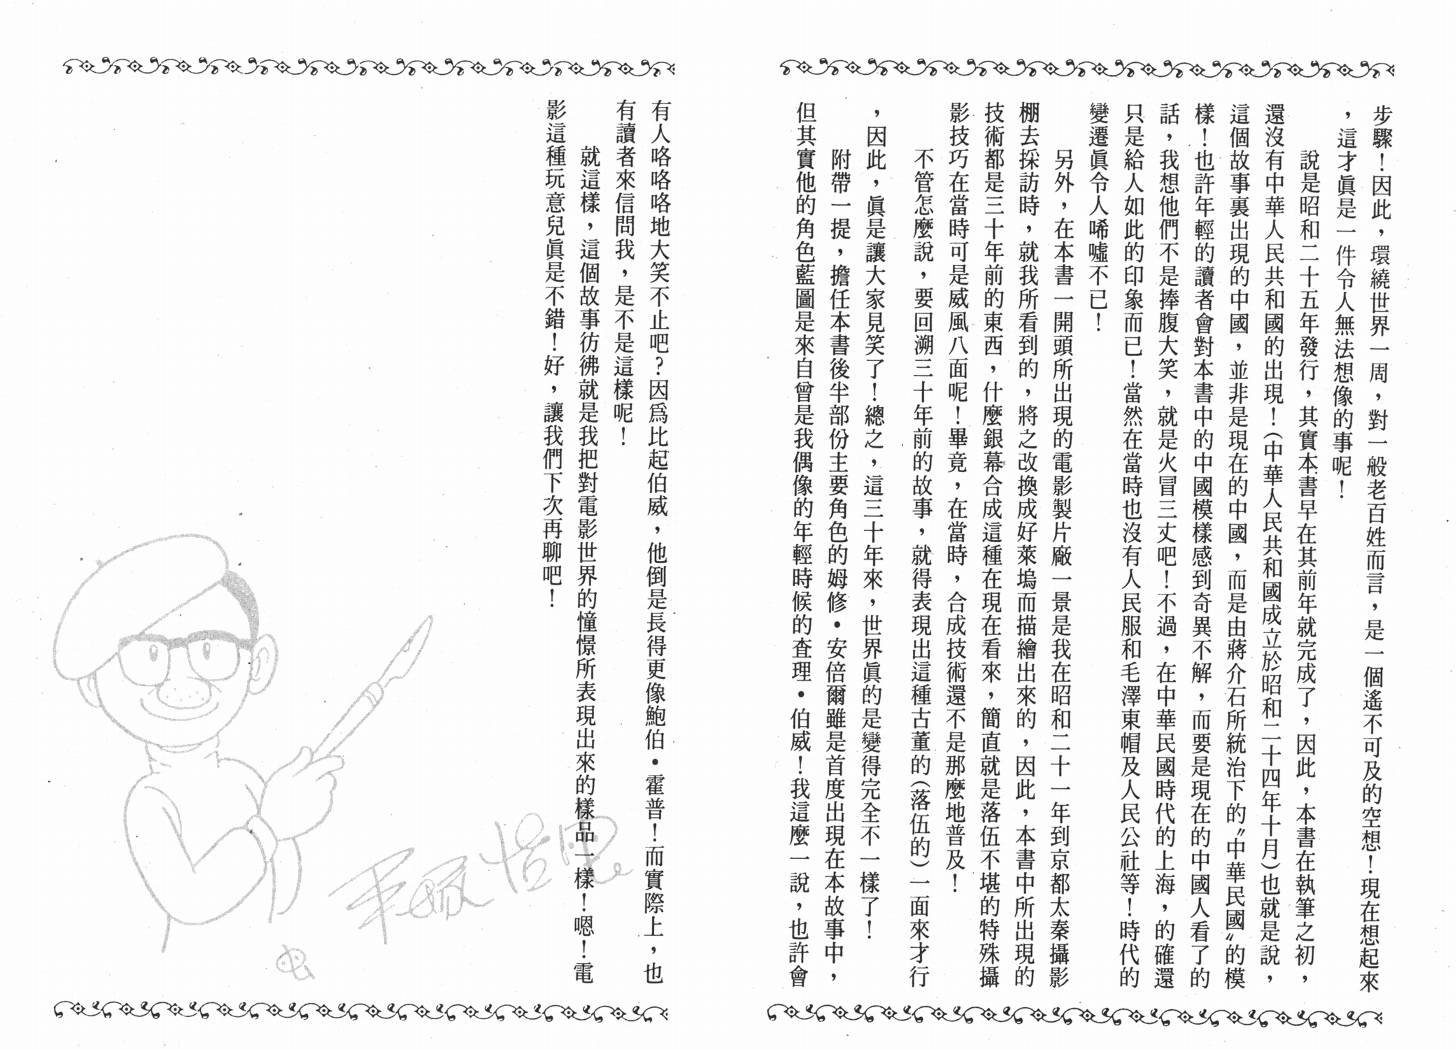 步驟！因此，環繞世界一周，對一般老百姓而言，是一個遙不可及的空想！現在想起來
，這才眞是一件令人無法想像的事呢！
說是昭和二十五年發行，其實本書早在其前年就完成了，因此，本書在執筆之初，
還沒有中華人民共和國的出現！（中華人民共和國成立於昭和二十四年十月）也就是說，
這個故事裏出現的中國，並非是現在的中國，而是由蔣介石所統治下的〝中華民國〞的模
樣！也許年輕的讀者會對本書中的中國模樣感到奇異不解，而要是現在的中國人看了的
話，我想他們不是捧腹大笑，就是火冒三丈吧！不過，在中華民國時代的上海，的確還
只是給人如此的印象而已！當然在當時也沒有人民服和毛澤東帽及人民公社等！時代的
變遷眞令人唏噓不已！
另外，在本書一開頭所出現的電影製片廠一景是我在昭和二十一年到京都太秦攝影
棚去採訪時，就我所看到的，將之改換成好萊塢而描繪出來的，因此，本書中所出現的
技術都是三十年前的東西，什麼銀幕合成這種在現在看來，簡直就是落伍不堪的特殊攝
影技巧在當時可是威風八面呢！畢竟，在當時，合成技術還不是那麼地普及！
不管怎麼說，要回溯三十年前的故事，就得表現出這種古董的（落伍的）一面來才行
，因此，眞是讓大家見笑了！總之，這三十年來，世界眞的是變得完全不一樣了！
附帶一提，擔任本書後半部份主要角色的姆修•安倍爾雖是首度出現在本故事中，
但其實他的角色藍圖是來自曾是我偶像的年輕時候的查理•伯威！我這麼一說，也許會
有人咯咯咯地大笑不止吧？因爲比起伯威，他倒是長得更像鮑伯•霍普！而實際上，也
有讀者來信問我，是不是這樣呢！
就這樣，這個故事彷彿就是我把對電影世界的憧憬所表現出來的樣品一樣！嗯！電
影這種玩意兒眞是不錯！好，讓我們下次再聊吧！
手塚治虫